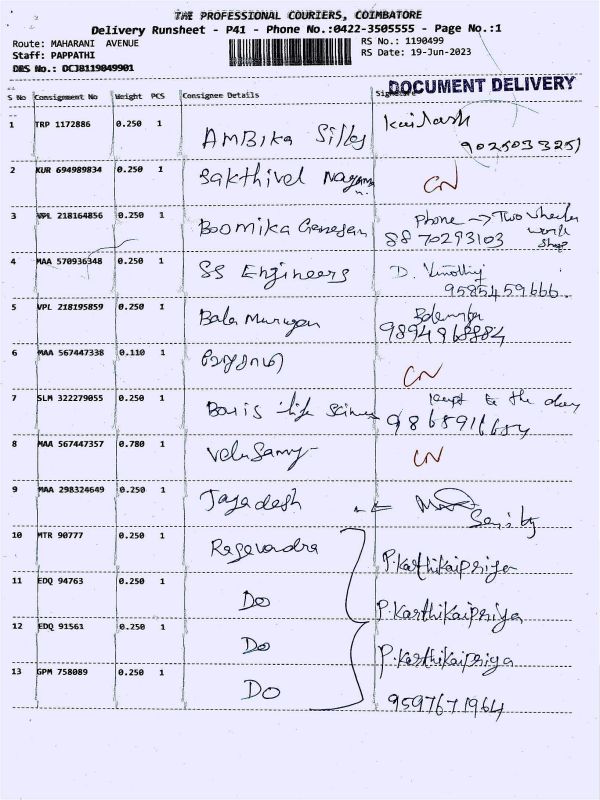 THE PROFESSIONAL COURIERS, COIMBATORE
Delivery Runsheet - P41 - Phone No.:0422-3505555 - Page No.:1
Route: MAHARANI AVENUE RS No.: 1190499
Staff: PAPPATHI RS Date: 19-Jun-2023
DRS No.: DCJ8119049901
DOCUMENT DELIVERY
S No Consignment No Weight PCS Consignee Details Signature
1 TRP 1172886 0.250 1 AMBIKA Silks Kailash
9025033251
2 KUR 694989834 0.250 1 Sakthivel CN
3 VPL 218164856 0.250 1 Boomika Ganesan Phone → Two wheeler
8870293103 work
shop
4 MAA 570936348 0.250 1 SS Engineers D.
9585459666
5 VPL 218195859 0.250 1 Bala Murugan
9894968884
6 MAA 567447338 0.110 1 CN
7 SLM 322279055 0.250 1 life kept to the
8 MAA 567447357 0.780 1 Velusamy CN
9 MAA 298324649 0.250 1 Jagadesh
10 MTR 90777 0.250 1 Ragavendra P.Karthikaipriya
11 EDQ 94763 0.250 1 Do P.Karthikaipriya
12 EDQ 91561 0.250 1 Do P.Karthikaipriya
13 GPM 758089 0.250 1 Do 9597671964